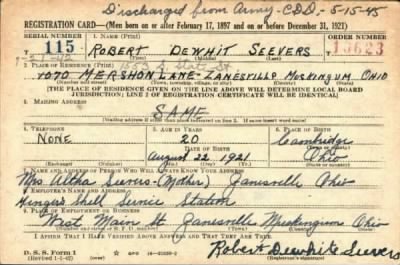 Discharged from Army-CDD-5-15-45
REGISTRATION CARD—(Men born on or after February 17, 1897 and on or before December 31, 1921)
SERIAL NUMBER
1. NAME (Print)
ORDER NUMBER
115
ROBERT DEWHIT SEEVERS
13623
(First) (Middle) (Last)
2. PLACE OF RESIDENCE (Print)
1070 MERSHON LANE - ZANESVILLE MUSKINGUM OHIO
(Number and street) (Town, township, village, or city) (County) (State)
[THE PLACE OF RESIDENCE GIVEN ON THE LINE ABOVE WILL DETERMINE LOCAL BOARD
JURISDICTION; LINE 2 OF REGISTRATION CERTIFICATE WILL BE IDENTICAL]
3. MAILING ADDRESS
SAME
(Mailing address if other than place indicated on line 2. If same insert word same)
4. TELEPHONE
5. AGE IN YEARS
6. PLACE OF BIRTH
NONE
20
Cambridge
DATE OF BIRTH
(Town or county)
August 22 1921
Ohio
(Exchange) (Number)
(Mo.) (Day) (Yr.)
(State or country)
7. NAME AND ADDRESS OF PERSON WHO WILL ALWAYS KNOW YOUR ADDRESS
Mrs Altha Seevers (Mother) Zanesville Ohio
8. EMPLOYER'S NAME AND ADDRESS
Shell Servic Station
9. PLACE OF EMPLOYMENT OR BUSINESS
West Main St Zanesville Muskingum Ohio
(Number and street or R. F. D. number) (Town) (County) (State)
I AFFIRM THAT I HAVE VERIFIED ABOVE ANSWERS AND THAT THEY ARE TRUE.
D. S. S. Form 1
(Revised 1-1-42)
(over)
Robert Dewhite Seevers
(Registrant's signature)